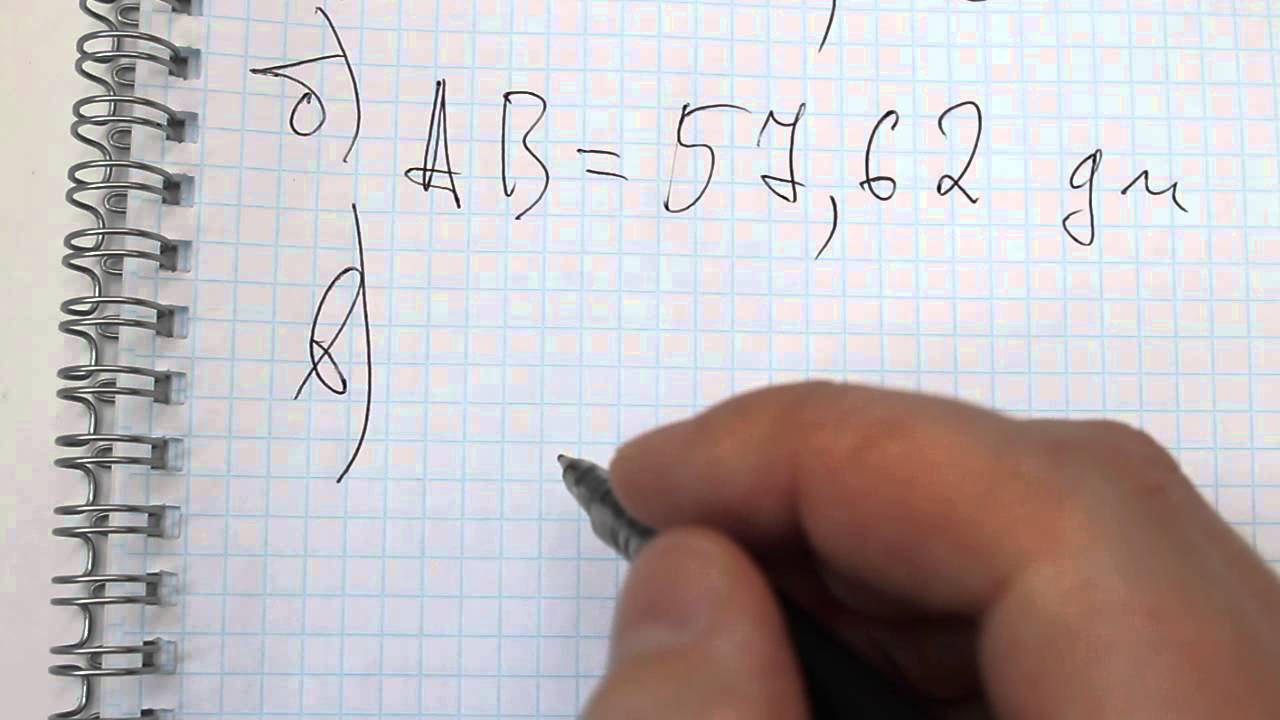 б) AB = 57,62 дм
в)